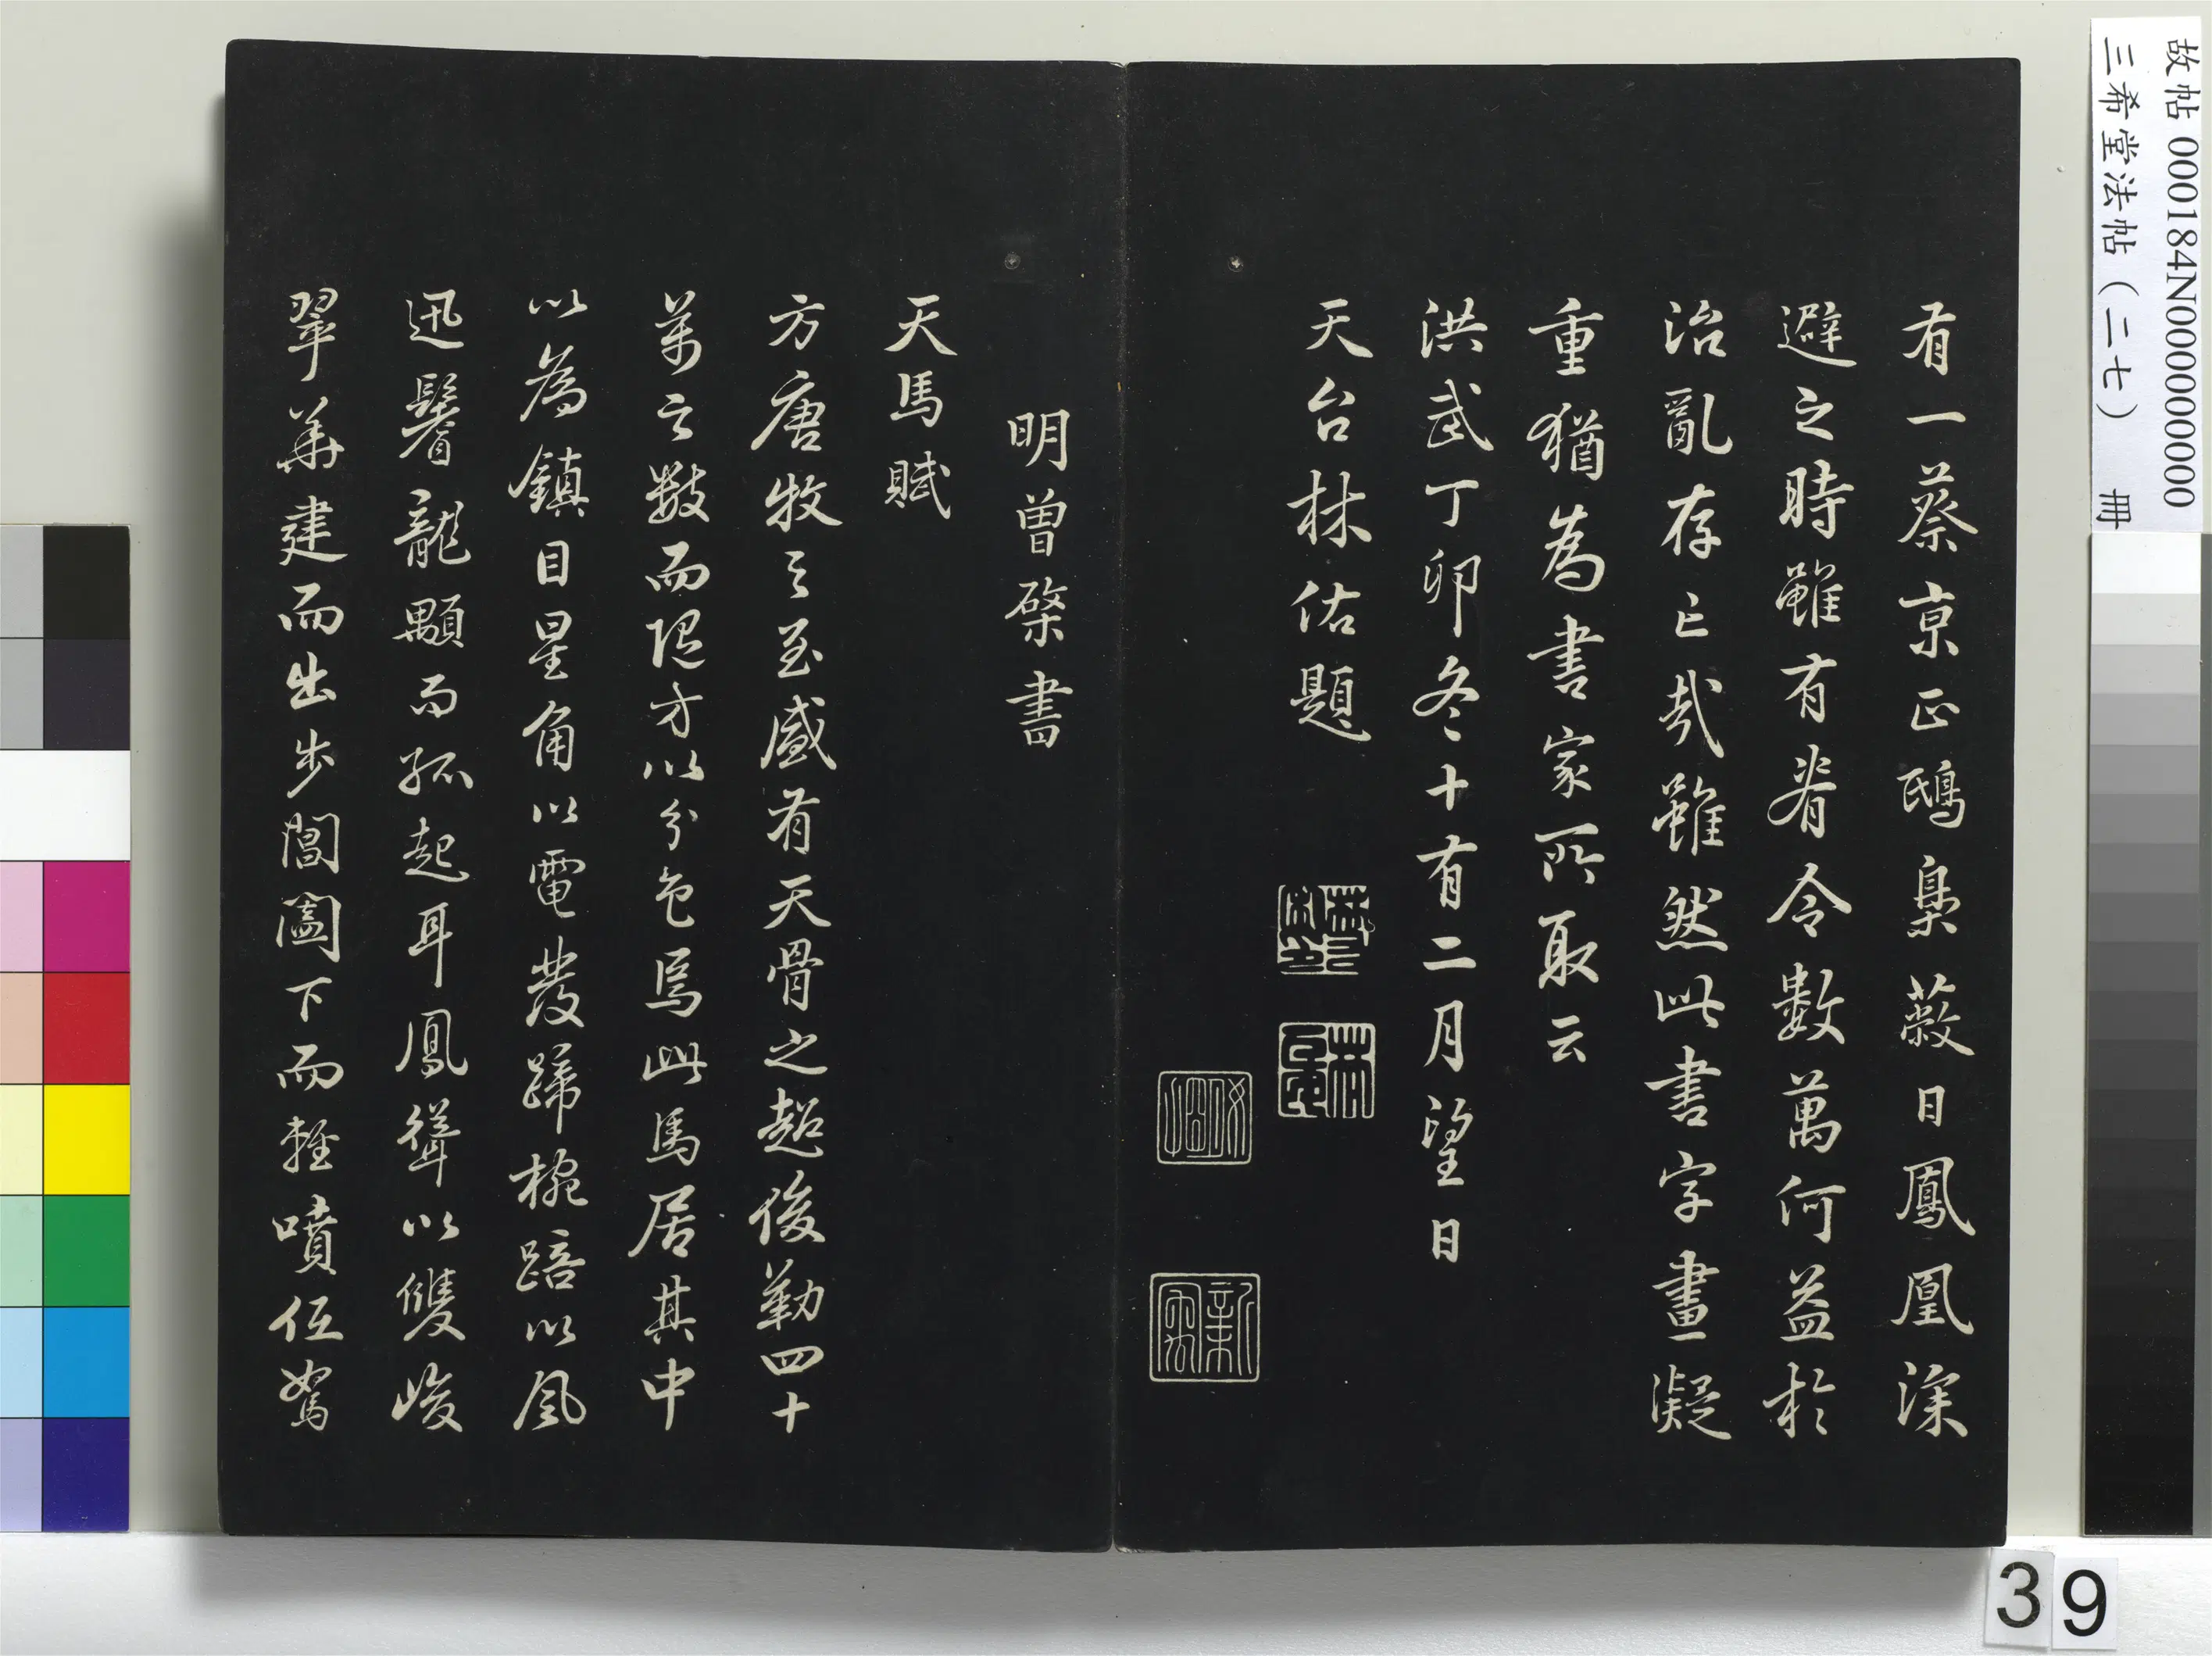 故帖 000184N000000000
三希堂法帖（二七） 冊
有一蔡京正鴟梟蔽日鳳凰深
避之時雖有眷令數萬何益於
治亂存亡哉雖然此書字畫凝
重猶為書家所取云
洪武丁卯冬十有二月望日
天台林佑題
明曾棨書
天馬賦
方唐牧之至盛有天骨之超俊勒四十
萬之數而隨方以分色焉此馬居其中
以為鎮目星角以電發蹄椀踣以風
迅鬐龍顒而孤起耳鳳聳以雙峻
翠華建而出步閶闔下而輕噴低駑
39